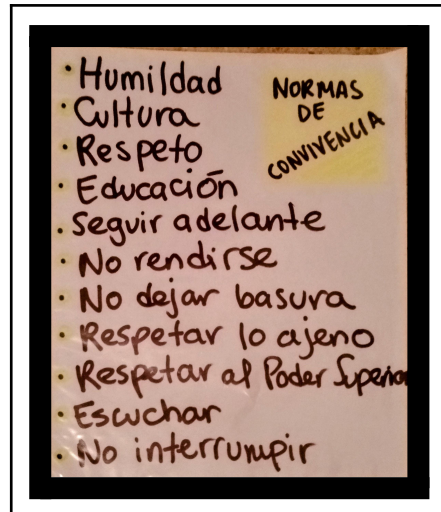 NORMAS
DE
CONVIVENCIA
• Humildad
• Cultura
• Respeto
• Educación
• Seguir adelante
• No rendirse
• No dejar basura
• Respetar lo ajeno
• Respetar al Poder Superior
• Escuchar
• No interrumpir